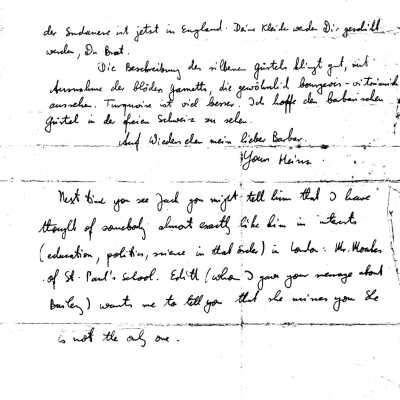 der Sudanese ist jetzt in England. Deine Kleider werden Dir geschickt
werden, Du Brat.
Die Beschreibung der silbenen Gürtels klingt gut, mit
Ausnahme der blöden Garnetts, die gewöhnlich bourgeois-victorianisch
aussehen. Turquoise ist viel besser. Ich hoffe den barbarischen
Gürtel in der freien Schweiz zu sehen.
Auf Wiedersehen mein lieber Barbar.
Your Heinz.
Next time you see Jack you might tell him that I have
thought of somebody almost exactly like him in interests
(education, politics, science in that order) in London: Mr. Monkes
of St. Paul's School. Edith (whom I gave your message about
Bailey) wants me to tell you that she misses you She
is not the only one.